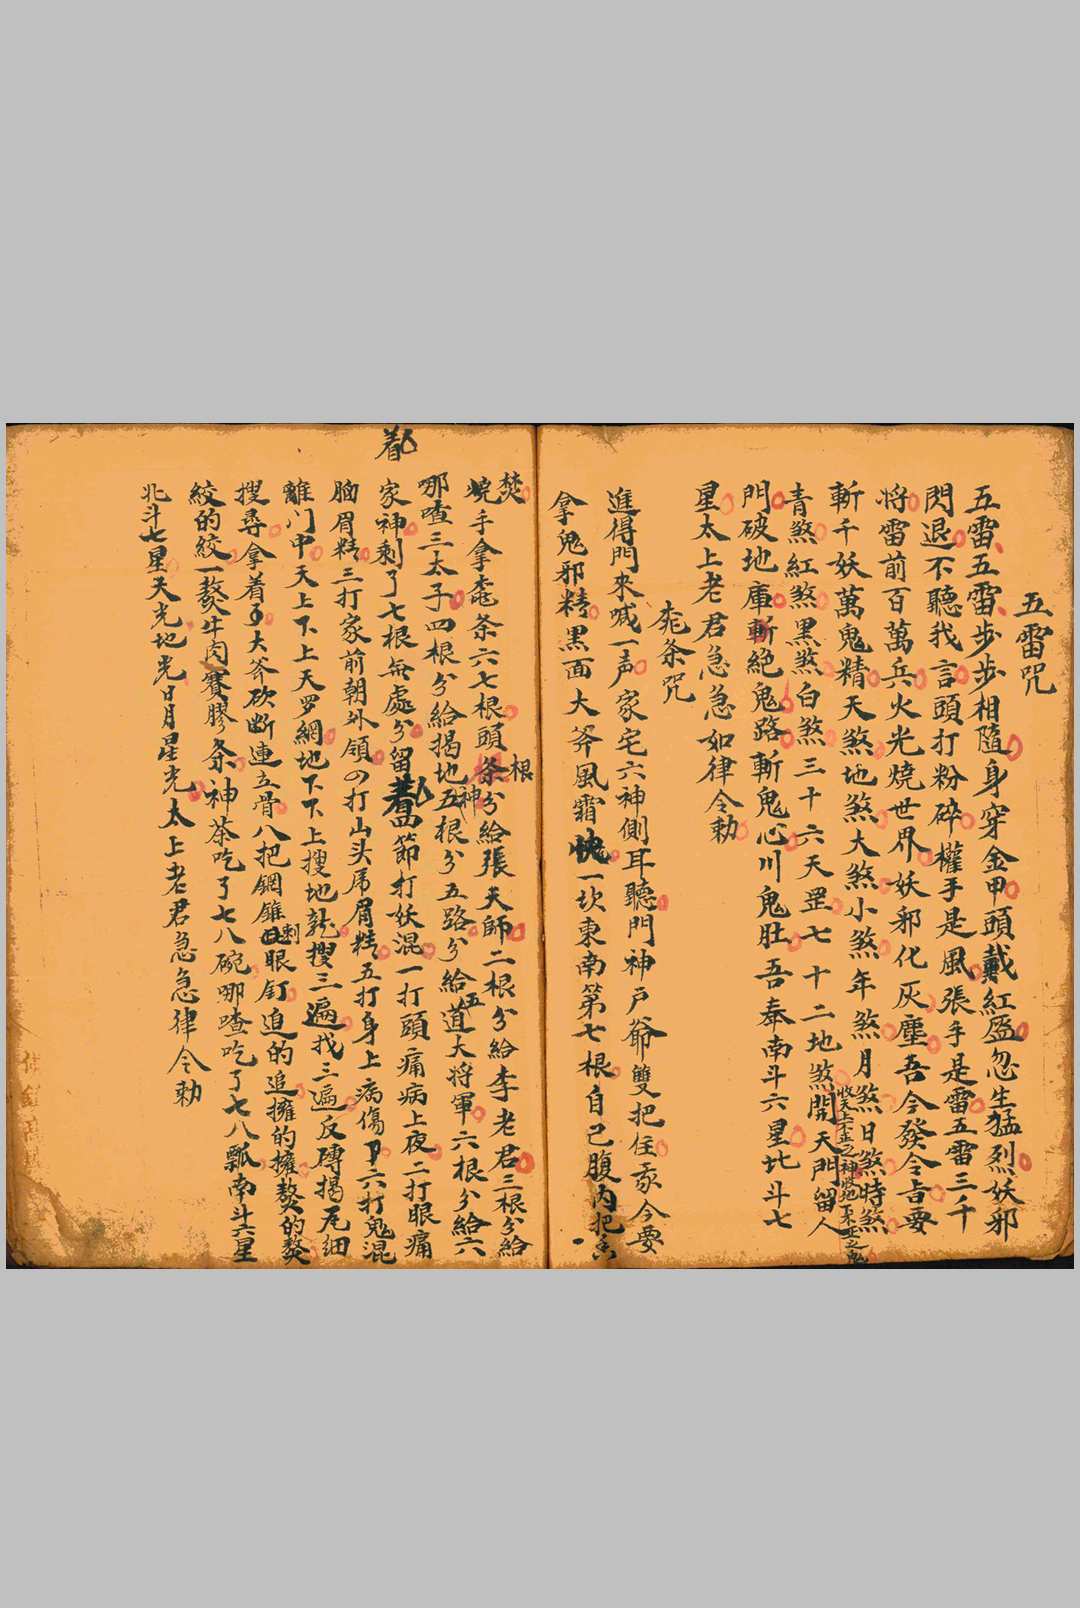 五雷咒
五雷五雷步步相隨身穿金甲頭戴紅盔忽生猛烈妖邪
閃退不聽我言頭打粉碎權手是風張手是雷五雷三千
将雷前百萬兵火光燒世界妖邪化灰塵吾今發令旨要
斬千妖萬鬼精天煞地煞大煞小煞年煞月煞日煞時煞
青煞紅煞黑煞白煞三十六天罡七十二地煞開天門留人
收天上正之神收地下
門破地庫斬絕鬼路斬鬼心川鬼肚吾奉南斗六星北斗七
星太上老君急急如律令勅
条咒
進得門來喊一声家宅六神側耳聽門神户爺雙把住今要
拿鬼邪精黑面大斧風霜快一坎東南第七根自己腹内把
焚手拿条六七根頭根分給張天師二根分給李老君三根分給
哪喳三太子四根分給揭地神五根分五路分給五道大将軍六根分給六
家神剩了七根無處分留着四節打妖混一打頭痛病上夜二打眼痛
胸眉精三打家前朝外領四打山头屌眉精五打身上病傷六打鬼混
離门甲天上下上天罗網地下下上搜地龍搜三遍找三遍反磚揭瓦细
搜尋拿着大斧砍断連立骨八把鋼錐刺眼釘追的追擁的擁熬的熬
絞的絞一熬牛肉賽膠条神茶吃了七八碗哪喳吃了七八瓢南斗六星
北斗七星天光地光日月星光太上老君急急律令勅